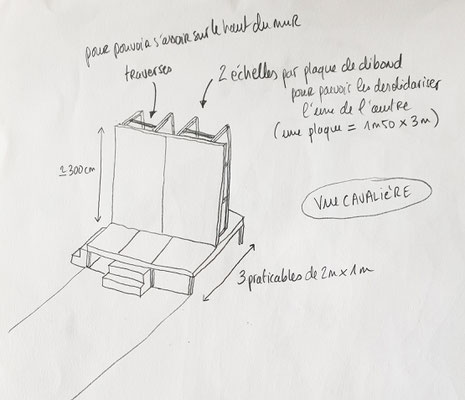 pour pouvoir s'assoir sur le haut du mur
traverses
2 échelles par plaque de dibond
pour pouvoir les desolidariser
l'une de l'autre
(une plaque = 1m50 x 3m)
± 300cm
VUE CAVALIÈRE
3 praticables de 2m x 1m